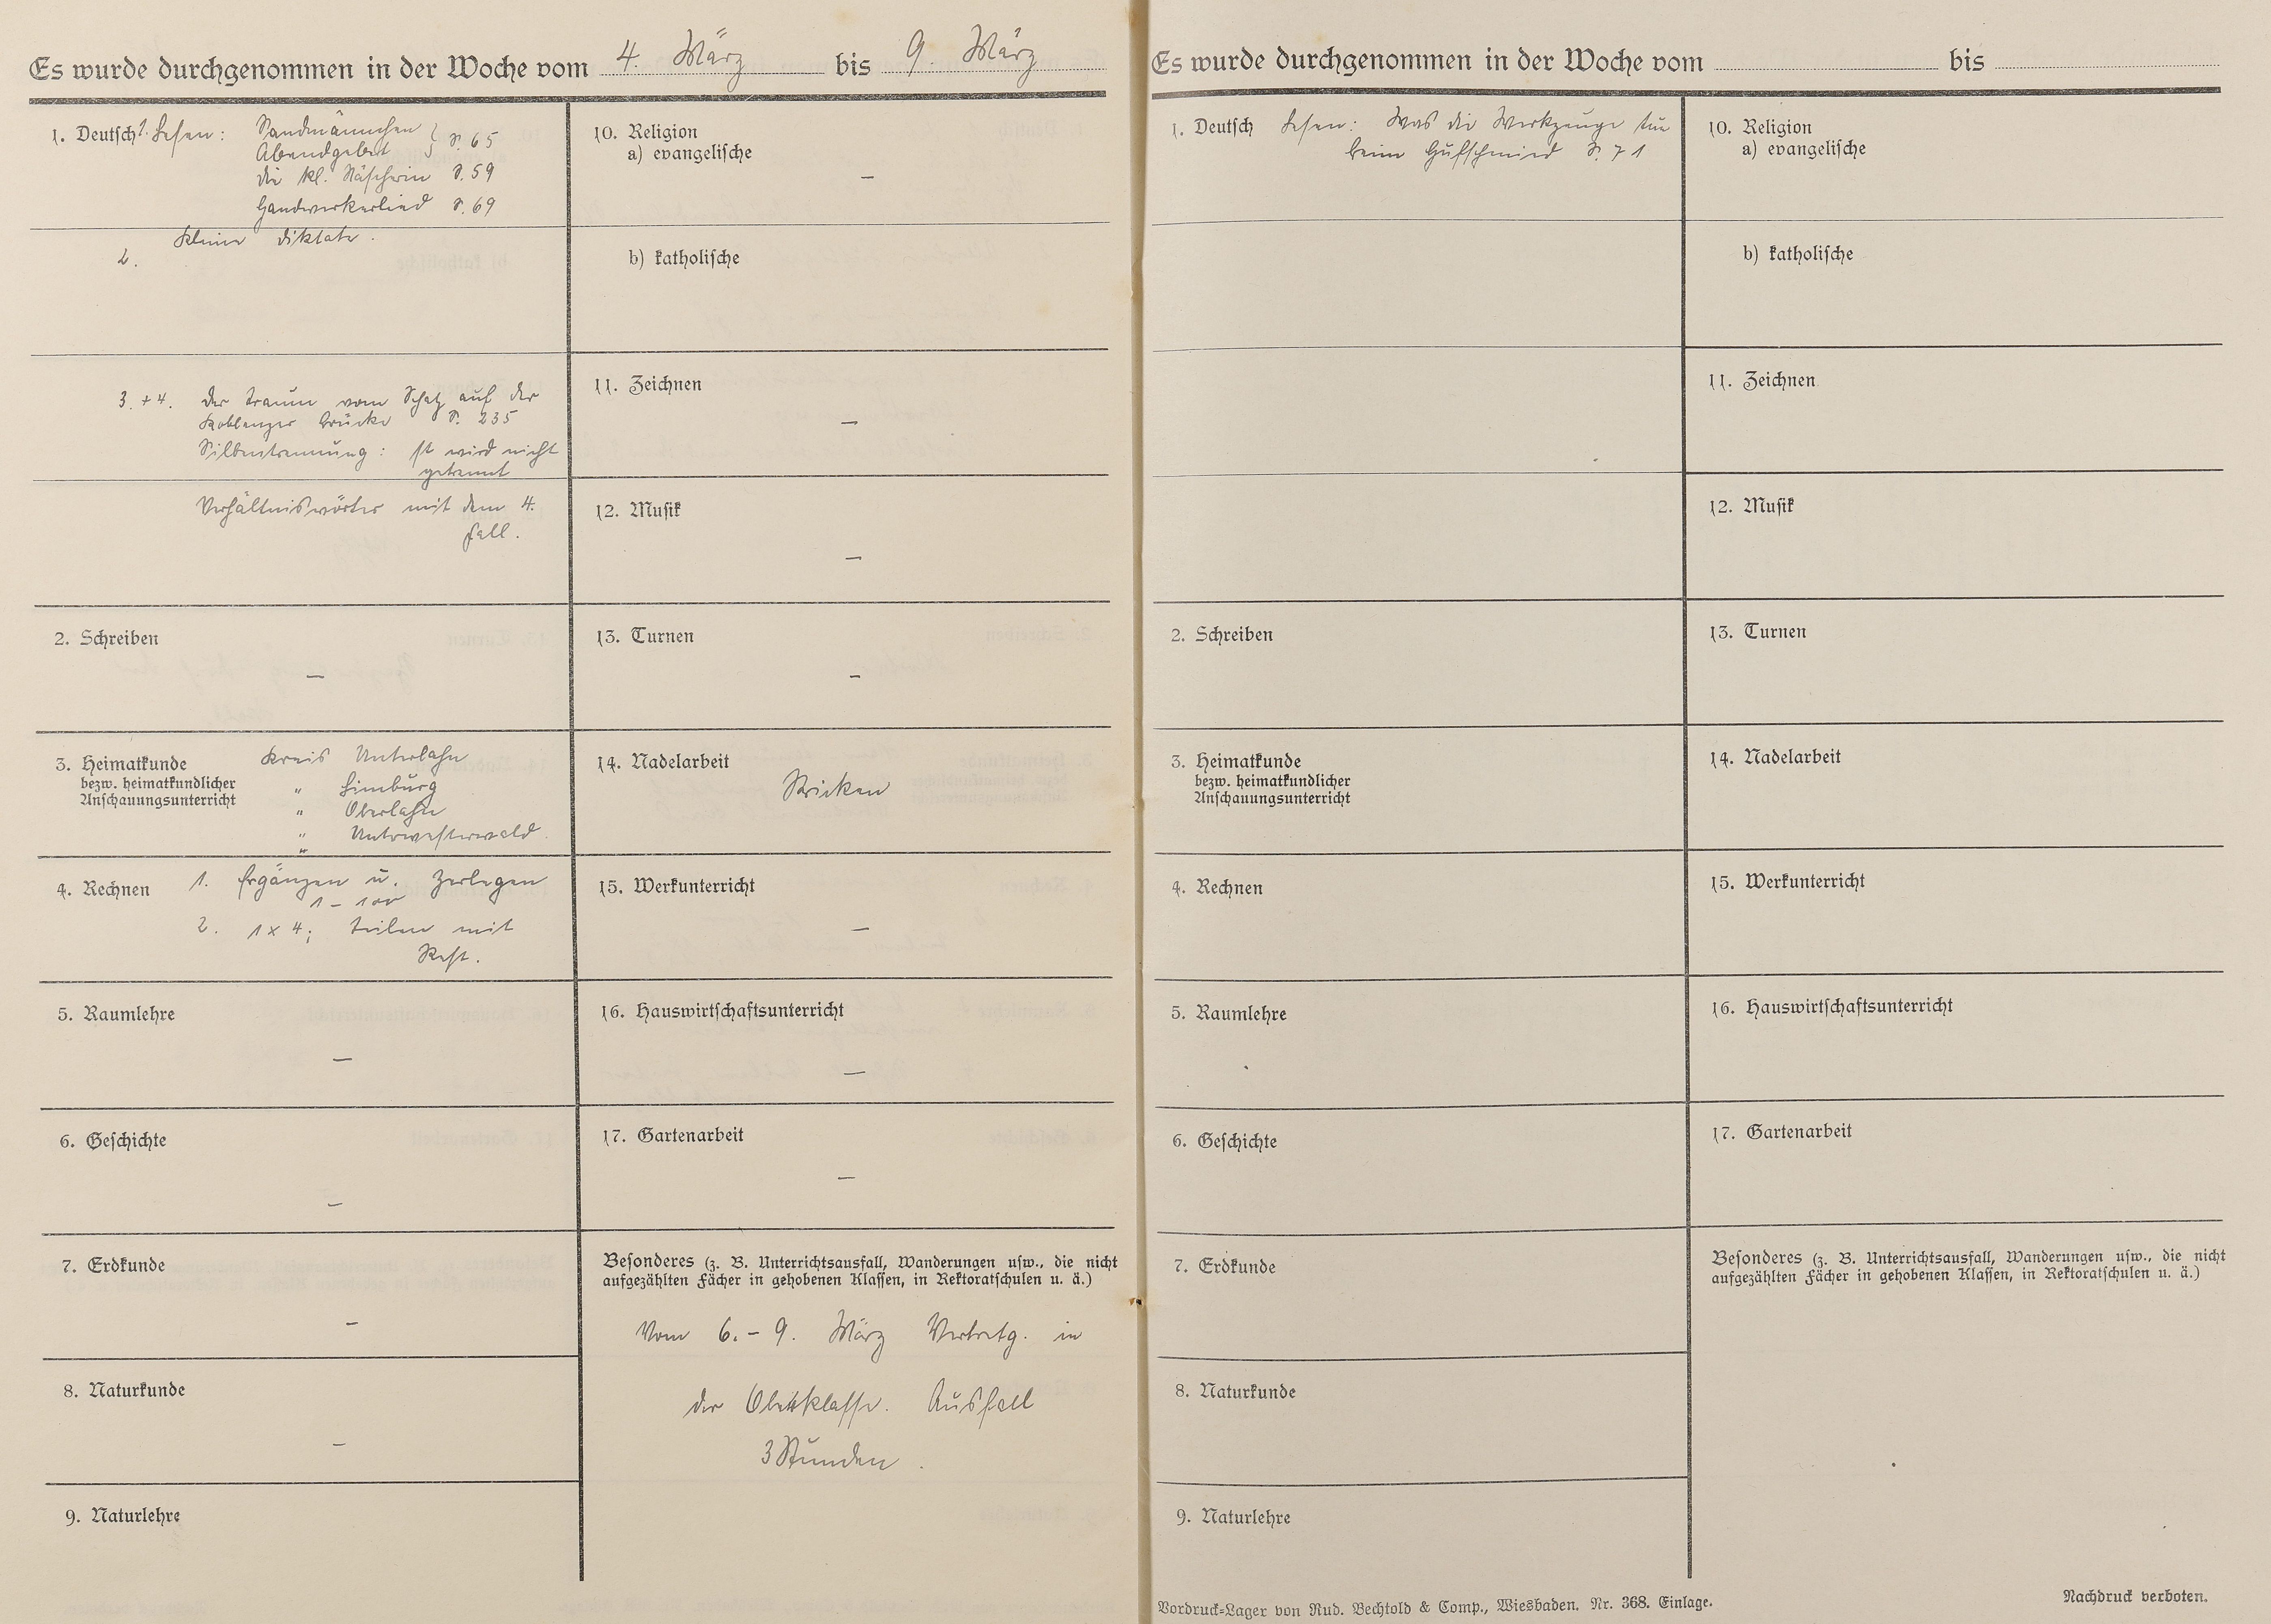 Es wurde durchgenommen in der Woche vom 4. März bis 9. März
1. Deutsch 1. Lesen: Sandmännchen
Abendgebet } S. 65
die kl. Näscherin S. 59
Handwerkerlied S. 69
Kleine Diktate.
2.
3. + 4. Der Traum vom Schatz auf der
Koblenzer Brücke S. 235
Silbentrennung: st wird nicht
getrennt
Verhältniswörter mit dem 4.
Fall.
2. Schreiben
–
3. Heimatkunde
bezw. heimatkundlicher
Anschauungsunterricht
Kreis Unterlahn
" Limburg
" Oberlahn
" Unterwesterwald
"
4. Rechnen 1. Ergänzen u. Zerlegen
1 – 100
2. 1 x 4; Teilen mit
Rest.
5. Raumlehre
–
6. Geschichte
–
7. Erdkunde
–
8. Naturkunde
–
9. Naturlehre
10. Religion
a) evangelische
–
b) katholische
11. Zeichnen
–
12. Musik
–
13. Turnen
–
14. Nadelarbeit
Stricken
15. Werkunterricht
–
16. Hauswirtschaftsunterricht
–
17. Gartenarbeit
–
Besonderes (z. B. Unterrichtsausfall, Wanderungen usw., die nicht
aufgezählten Fächer in gehobenen Klassen, in Rektoratschulen u. ä.)
Vom 6. – 9. März Vertretg. in
der Oberklasse. Ausfall
3 Stunden.
Es wurde durchgenommen in der Woche vom bis
1. Deutsch Lesen: Was die Werkzeuge tun
beim Hufschmied S. 71
2. Schreiben
3. Heimatkunde
bezw. heimatkundlicher
Anschauungsunterricht
4. Rechnen
5. Raumlehre
6. Geschichte
7. Erdkunde
8. Naturkunde
9. Naturlehre
10. Religion
a) evangelische
b) katholische
11. Zeichnen
12. Musik
13. Turnen
14. Nadelarbeit
15. Werkunterricht
16. Hauswirtschaftsunterricht
17. Gartenarbeit
Besonderes (z. B. Unterrichtsausfall, Wanderungen usw., die nicht
aufgezählten Fächer in gehobenen Klassen, in Rektoratschulen u. ä.)
Vordruck-Lager von Rud. Bechtold & Comp., Wiesbaden. Nr. 368. Einlage.
Nachdruck verboten.